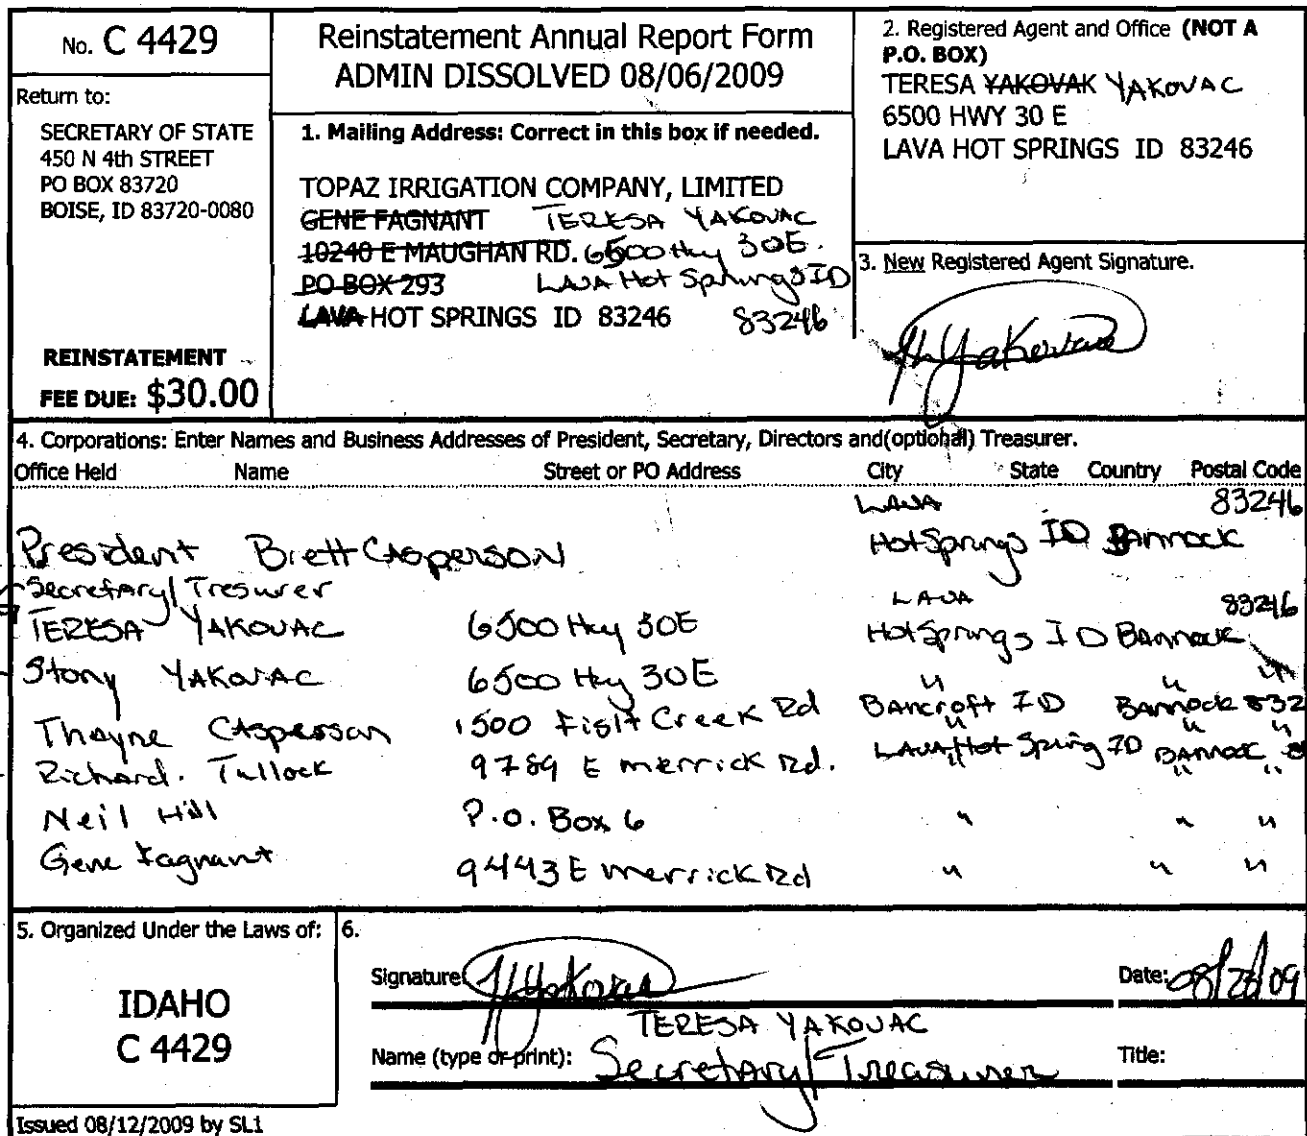 No. C 4429
Return to:
SECRETARY OF STATE
450 N 4th STREET
PO BOX 83720
BOISE, ID 83720-0080
REINSTATEMENT
FEE DUE: $30.00
Reinstatement Annual Report Form
ADMIN DISSOLVED 08/06/2009
1. Mailing Address: Correct in this box if needed.
TOPAZ IRRIGATION COMPANY, LIMITED
GENE FAGNANT TERESA YAKOVAC
10240 E MAUGHAN RD. 6500 Hwy 30E.
PO BOX 293 LAVA Hot Springs ID
LAVA HOT SPRINGS ID 83246 83246
2. Registered Agent and Office (NOT A
P.O. BOX)
TERESA YAKOVAK YAKOVAC
6500 HWY 30 E
LAVA HOT SPRINGS ID 83246
3. New Registered Agent Signature.
4. Corporations: Enter Names and Business Addresses of President, Secretary, Directors and(optional) Treasurer.
Office Held Name Street or PO Address City State Country Postal Code
LAVA 83246
President Brett Casperson Hot Springs ID Bannock
Secretary/Tresurer LAVA 83246
TERESA YAKOVAC 6500 Hwy 30E Hot Springs ID Bannock
Stony YAKOVAC 6500 Hwy 30E " " "
Thayne Casperson 1500 Fish Creek Rd Bancroft ID Bannock 832
Richard. Tullock 9789 E merrick Rd. LAVA Hot Spring ID Bannock
Neil Hill P.O. Box 6 " " "
Gene Fagnant 9443 E merrick Rd " " "
5. Organized Under the Laws of:
IDAHO
C 4429
Issued 08/12/2009 by SL1
6.
Signature: Date:
TERESA YAKOVAC
Name (type or print): Secretary/Treasurer Title: